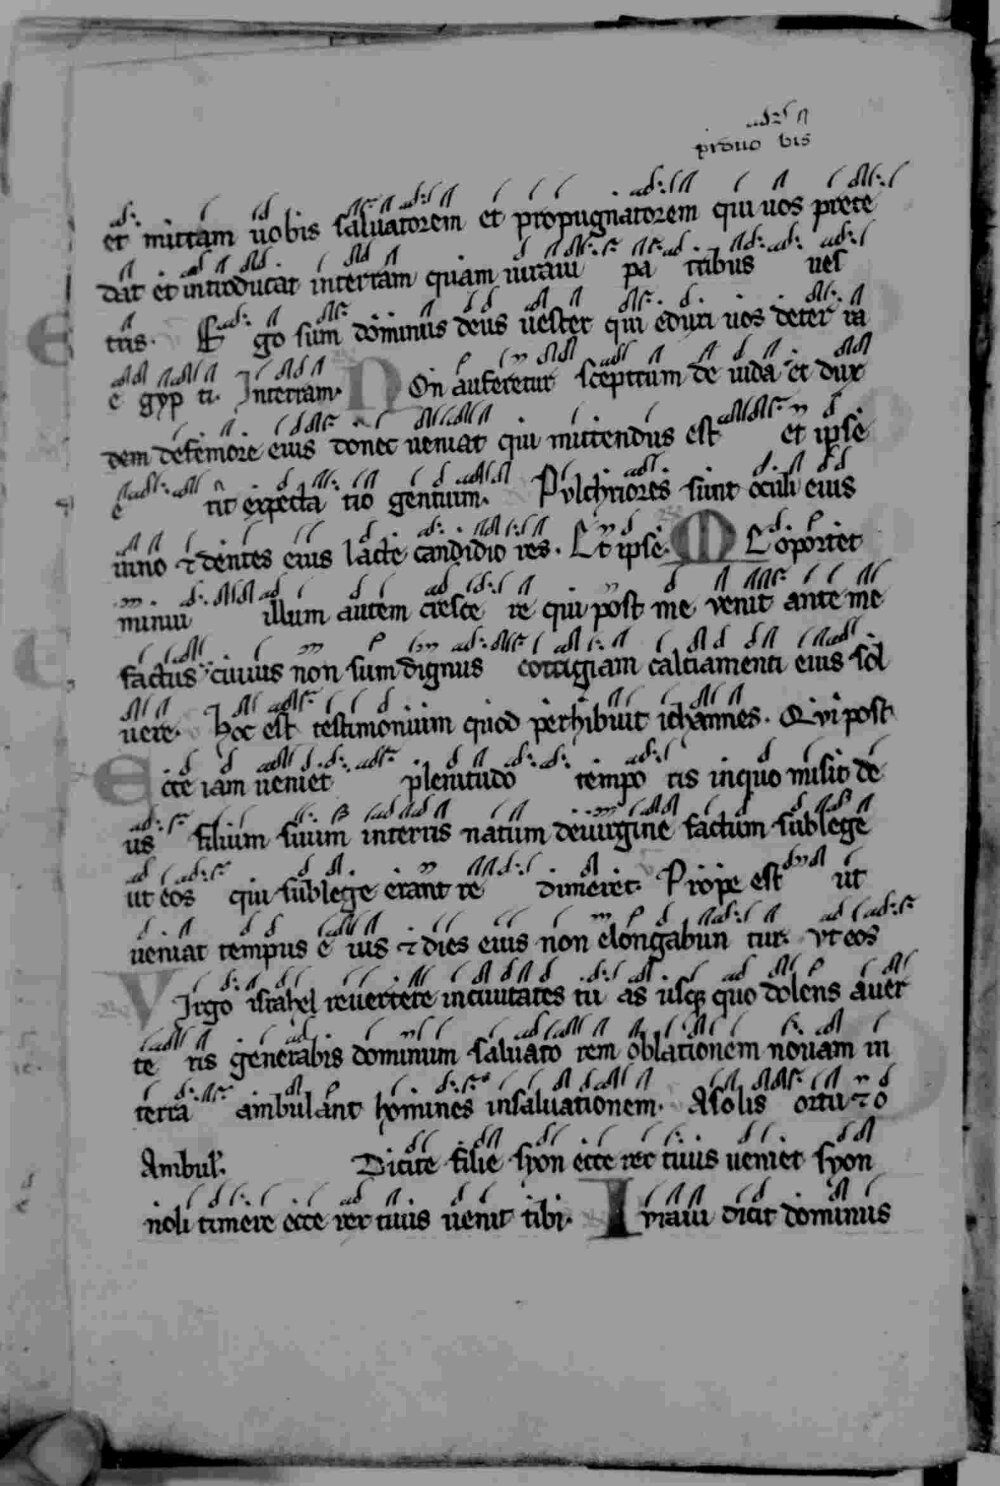 prouo bis
et mittam uobis saluatorem et propugnatorem qui uos prece
dat et introducat interram quam iuraui pa tribus ues
tris. Ego sum dominus deus uester qui eduxi uos deter ra
e gyp ti. Interram. Non auferetur sceptrum de iuda et dux
dem defemore eius donec ueniat qui mittendus est et ipse
e rit expecta tio gentium. Pulchriores sunt oculi eius
uino ⁊ dentes eius lacte candidio res. Et ipse. Me oportet
minui illum autem cresce re qui post me venit ante me
factus cuius non sum dignus corrigiam calciamenti eius sol
uere. Hoc est testimonium quod perhibuit iohannes. Qvi post
Ecce iam ueniet plenitudo tempo ris inquo misit de
us filium suum interris natum deuirgine factum sublege
ut eos qui sublege erant re dimeret. Prope est ut
ueniat tempus e ius ⁊ dies eius non elongabun tur. Vt eos
Virgo israhel reuertere inciuitates tu as usq; quo dolens auer
te ris generabis dominum saluato rem oblationem nouam in
terra ambulant homines insaluationem. Asolis ortu ⁊ o
Ambul. Dicite filie syon ecce rex tuus ueniet syon
noli timere ecce rex tuus uenit tibi. Iuraui dicit dominus